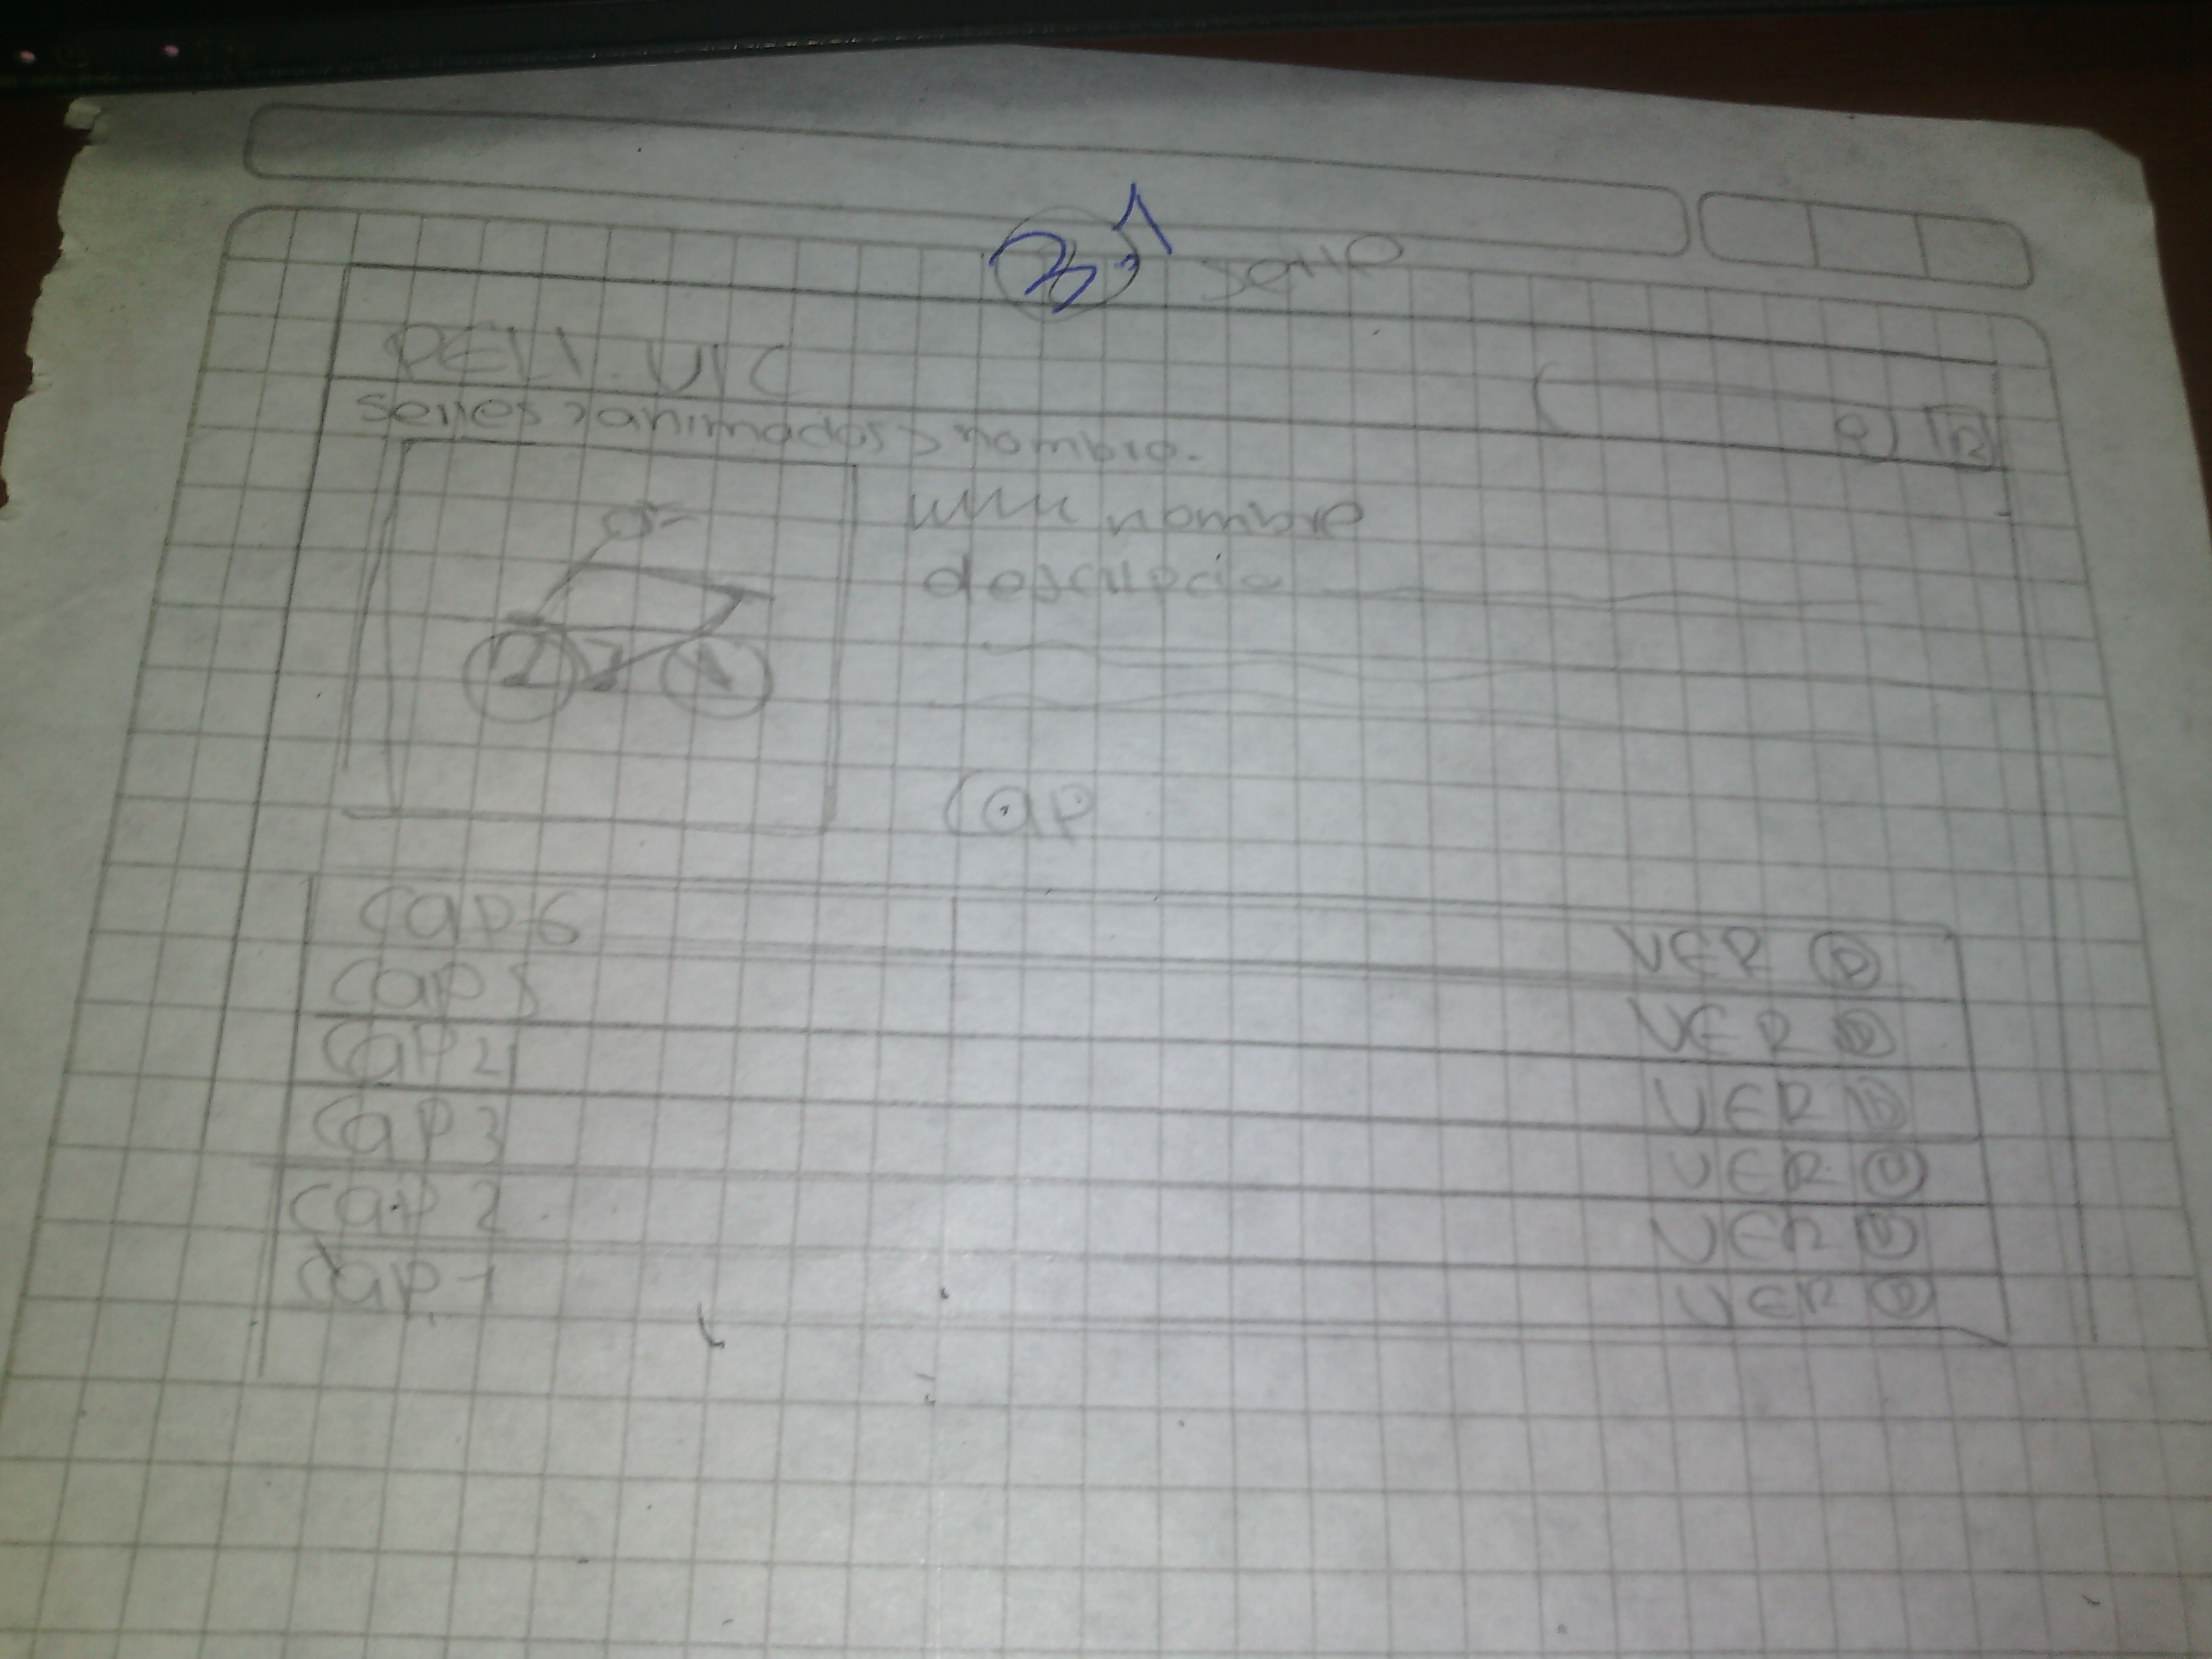 3.1 serie
PELI.VIC
series > animados > nombre.
nombre
descripcio
Cap
cap 6 VER
cap 5 VER
cap 4 VER
cap 3 VER
cap 2 VER
cap 1 VER